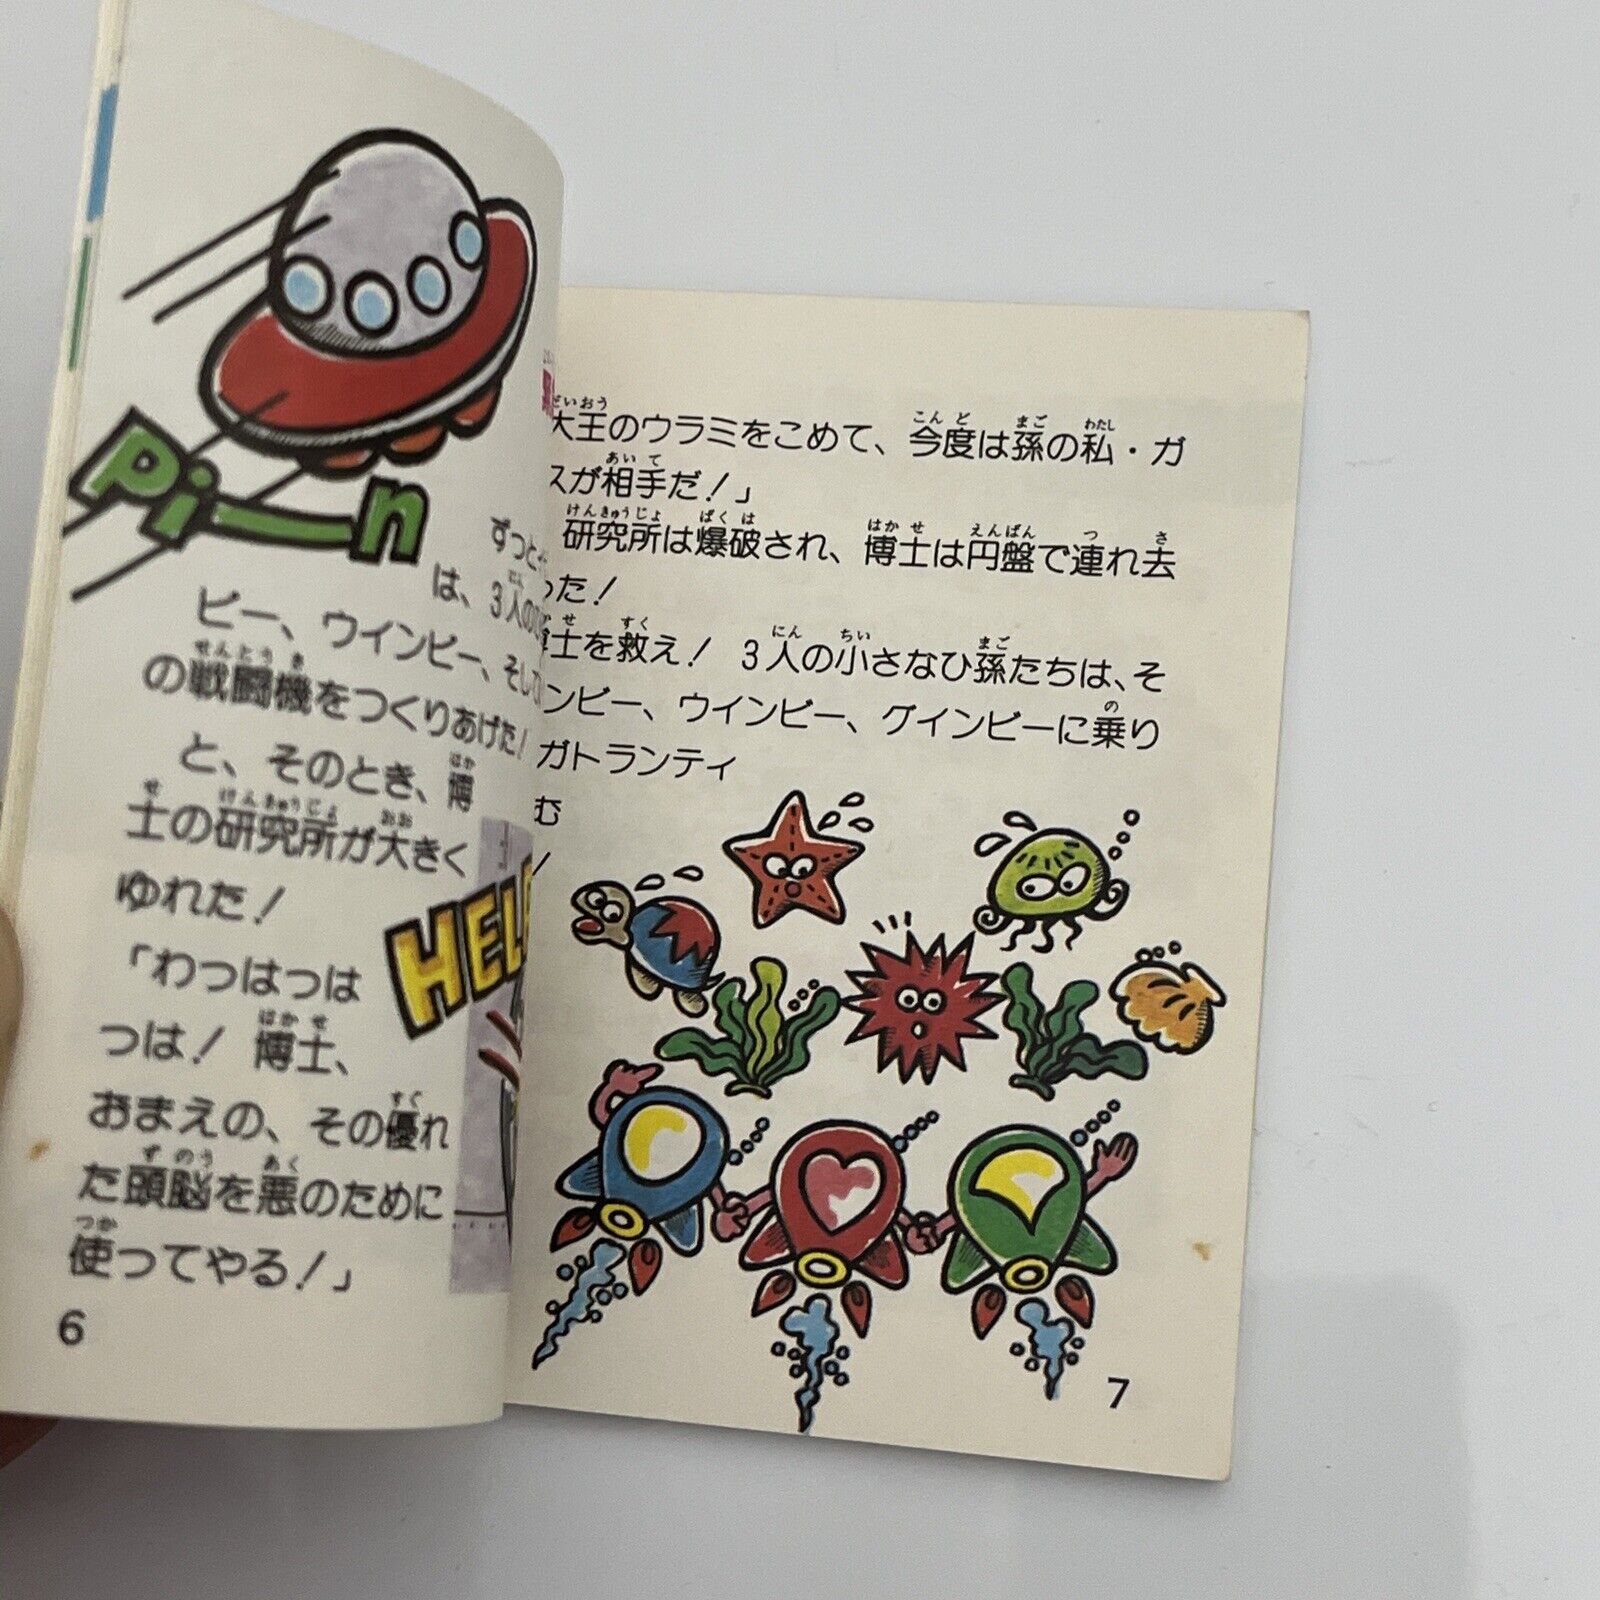 Pi—n
すっと
は、3人の
ビー、ウインビー、そして
の戦闘機をつくりあげた!
と、そのとき、博
士の研究所が大きく
ゆれた!
「わっはっは
っは! 博士、
おまえの、その優れ
た頭脳を悪のために
使ってやる!」
HEL
6
大王のウラミをこめて、今度は孫の私・ガ
スが相手だ!」
研究所は爆破され、博士は円盤で連れ去
った!
博士を救え! 3人の小さなひ孫たちは、そ
ンビー、ウインビー、グインビーに乗り
ガトランティ
む
!
7